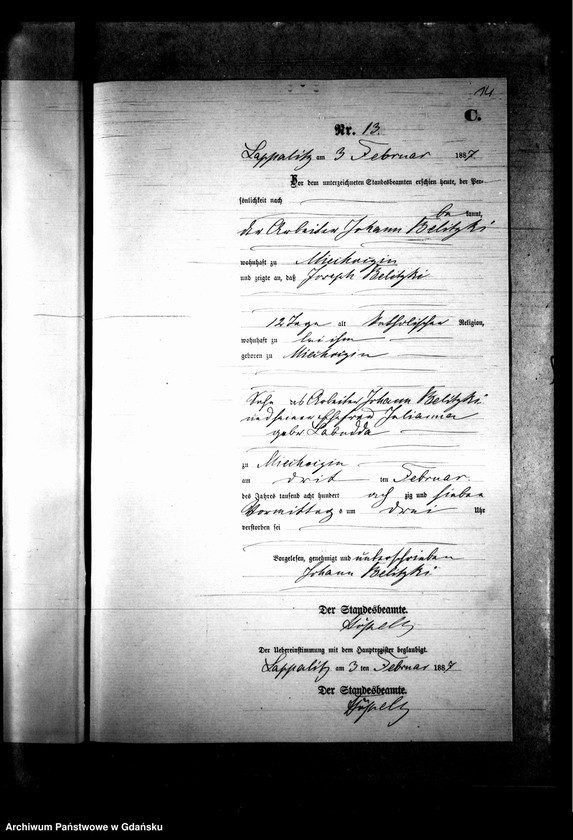 14.
C.
Nr. 13.
Lappalitz am 3 Februar 1887
Vor dem unterzeichneten Standesbeamten erschien heute, der Per-
sönlichkeit nach
be kannt,
der Arbeiter Johann Belitzki
wohnhaft zu Miechuzin
und zeigte an, daß Joseph Belitzki
12 Tage alt katholischer Religion,
wohnhaft zu bei ihm
geboren zu Miechuzin
Sohn des Arbeiter Johann Belitzki
und seiner Ehefrau Julianna
gebr Labudda
zu Miechuzin
am dritten Februar
des Jahres tausend acht hundert achtzig und sieben
Vormittag s um drei Uhr
verstorben sei
Vorgelesen, genehmigt und unterschrieben
Johann Belitzki
Der Standesbeamte.
Der Uebereinstimmung mit dem Hauptregister beglaubigt.
Lappalitz am 3 ten Februar 1887
Der Standesbeamte.
Archiwum Państwowe w Gdańsku